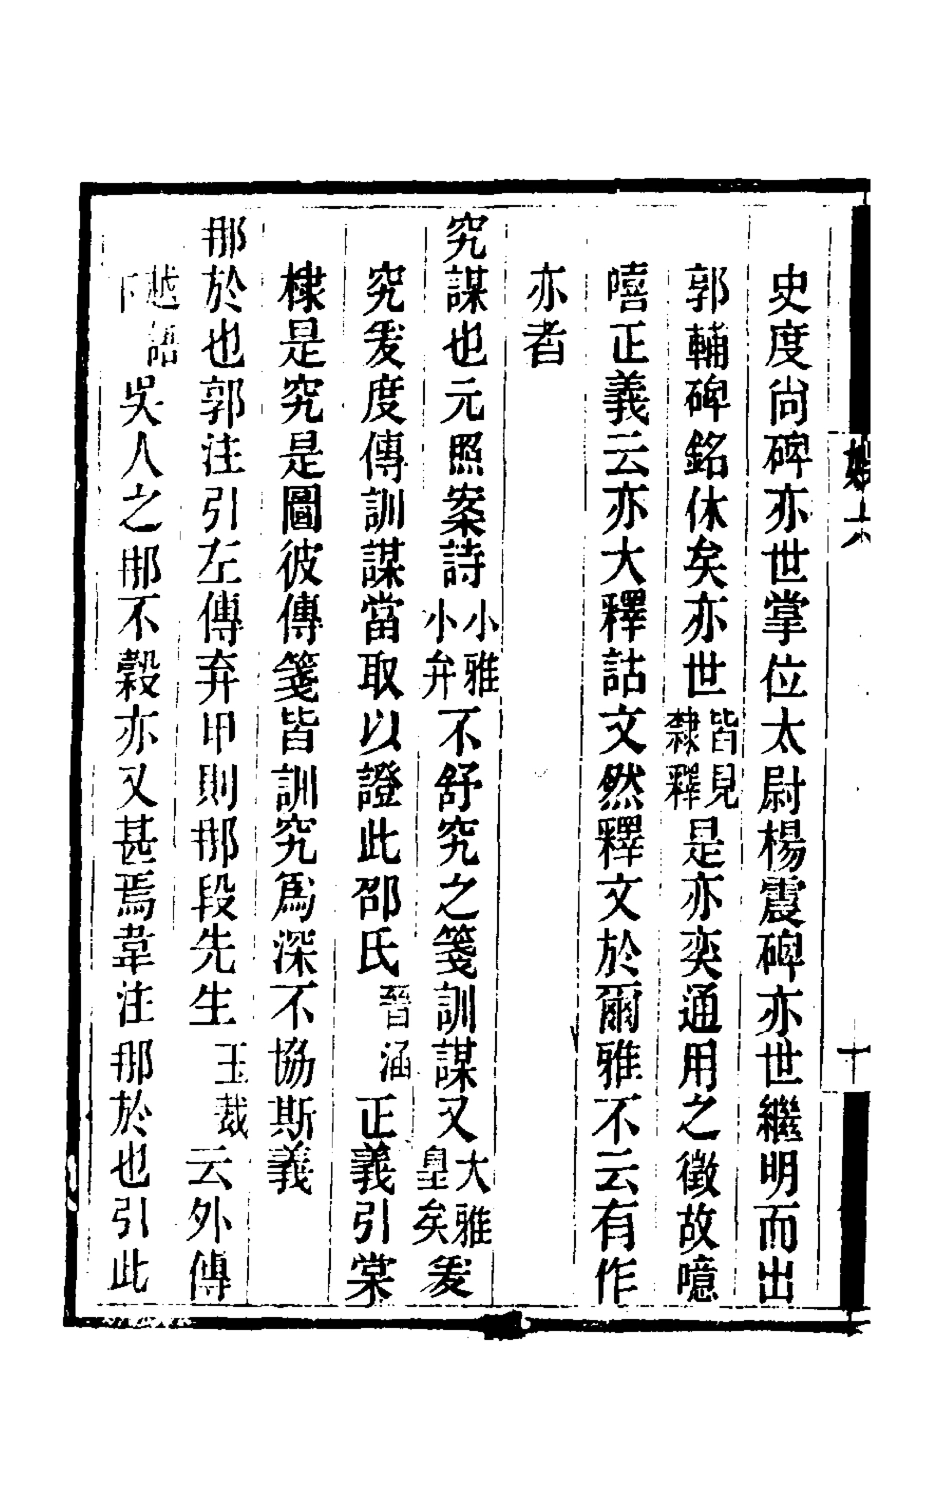 史度尙碑亦世掌位太尉楊震碑亦世繼明而出
郭輔碑銘休矣亦世皆見隸釋是亦奕通用之徵故噫
嘻正義云亦大釋詁文然釋文於爾雅不云有作
亦者
究謀也元照案詩小雅小弁不舒究之箋訓謀又大雅皇矣爰
究爰度傳訓謀當取以證此邵氏晉涵正義引棠
棣是究是圖彼傳箋皆訓究爲深不協斯義
那於也郭注引左傳弃甲則那段先生玉裁云外傳
越語下吳人之那不穀亦又甚焉韋注那於也引此
十